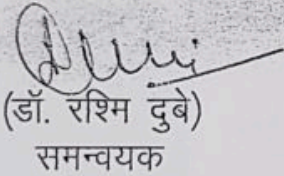 (डॉ. रश्मि दुबे)
समन्वयक